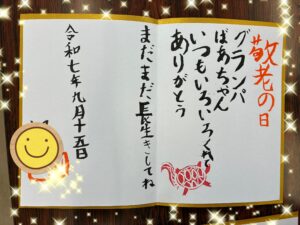 敬老の日
グランパ
ばあちゃん
いつもいろいろ
ありがとう
まだまだ長生きしてね
令和七年九月十五日